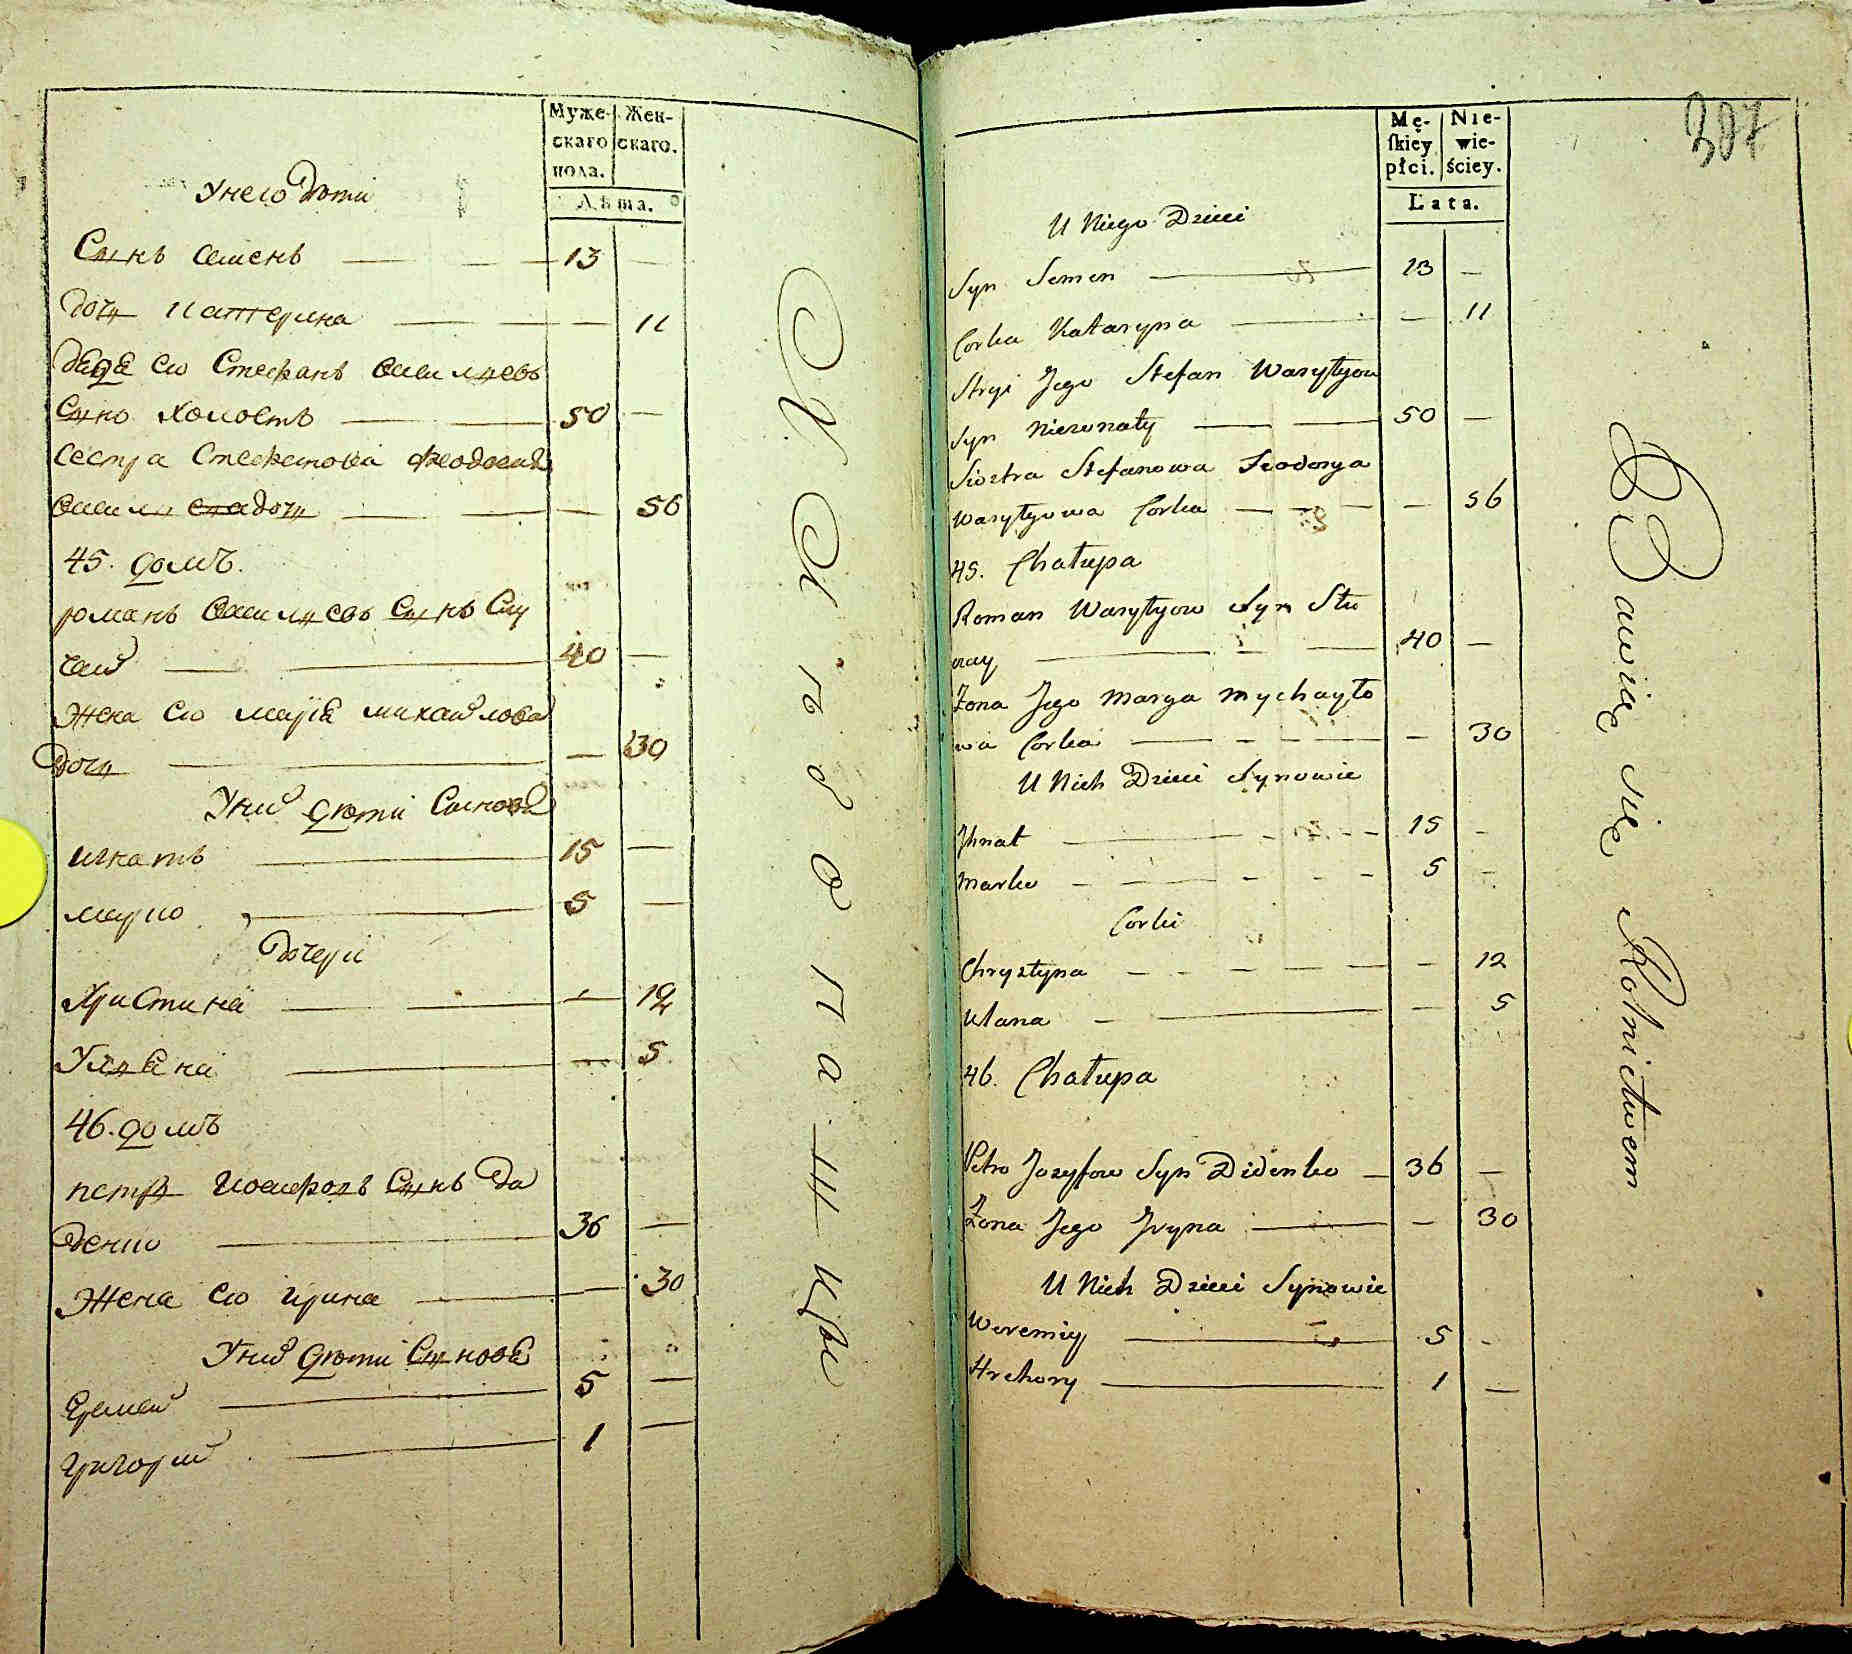 Муже-
скаго
пола.
Жен-
скаго.
Лѣта.
У него Дѣти
Сынъ Семенъ 13 —
дочь Катерина — 11
дядя его Стефанъ Васильевъ
Сынъ холостъ 50 —
Сестра Стефанова Феодосия
Василева дочь — 56
45. домъ.
Романъ Васильевъ Сынъ Слу
чай 40 —
Жена его Марія Михайлова
дочь — 30
У них дѣти Сыновя
Игнатъ 15 —
Марко 5 —
Дочери
Христина — 12
Уляна — 5
46. домъ
Петръ Иосифовъ Сынъ Ди
денко 36 —
Жена его Ирина — 30
У них дѣти Сыновя
Еремей 5 —
Григорий 1 —
Хлѣбопашцы
307
Mę-
ſkiey
płci.
Nie-
wie-
ściey.
Lata.
U Niego Dzieci
Syn Semen 13 —
Corka Kataryna — 11
Stryi Jego Stefan Wasylyow
Syn Niezonaty 50 —
Siostra Stefanowa Feodosya
Wasylyowa Corka — 56
45. Chałupa
Roman Wasylyow Syn Słu
czay 40 —
Żona Jego Marya Mychayło
wa Corka — 30
U Nich Dzieci Synowie
Jhnat 15 —
Marko 5 —
Corki
Chrystyna — 12
Ulana — 5
46. Chałupa
Petro Jozyfow Syn Didenko 36 —
Żona Jego Jryna — 30
U Nich Dzieci Synowie
Weremiy 5 —
Hrehory 1 —
Bawią się Rolnictwem